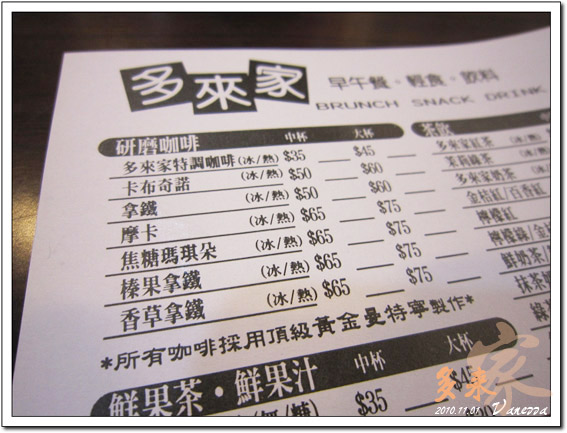 多來家
早午餐·輕食·飲料
BRUNCH SNACK DRINK
研磨咖啡 中杯 大杯
多來家特調咖啡(冰/熱) $35 $45
卡布奇諾 (冰/熱) $50 $60
拿鐵 (冰/熱) $50 $60
摩卡 (冰/熱) $65 $75
焦糖瑪琪朵 (冰/熱) $65 $75
榛果拿鐵 (冰/熱) $65 $75
香草拿鐵 (冰/熱) $65 $75
*所有咖啡採用頂級黃金曼特寧製作*
鮮果茶·鮮果汁 中杯 大杯
$35 $45
茶飲
多來家紅茶
茉莉綠茶
多來家奶茶
金桔紅/百香紅
檸檬紅
檸檬綠/金
鮮奶茶/
抹茶
綠
多來家
2010.11.01 Vanessa